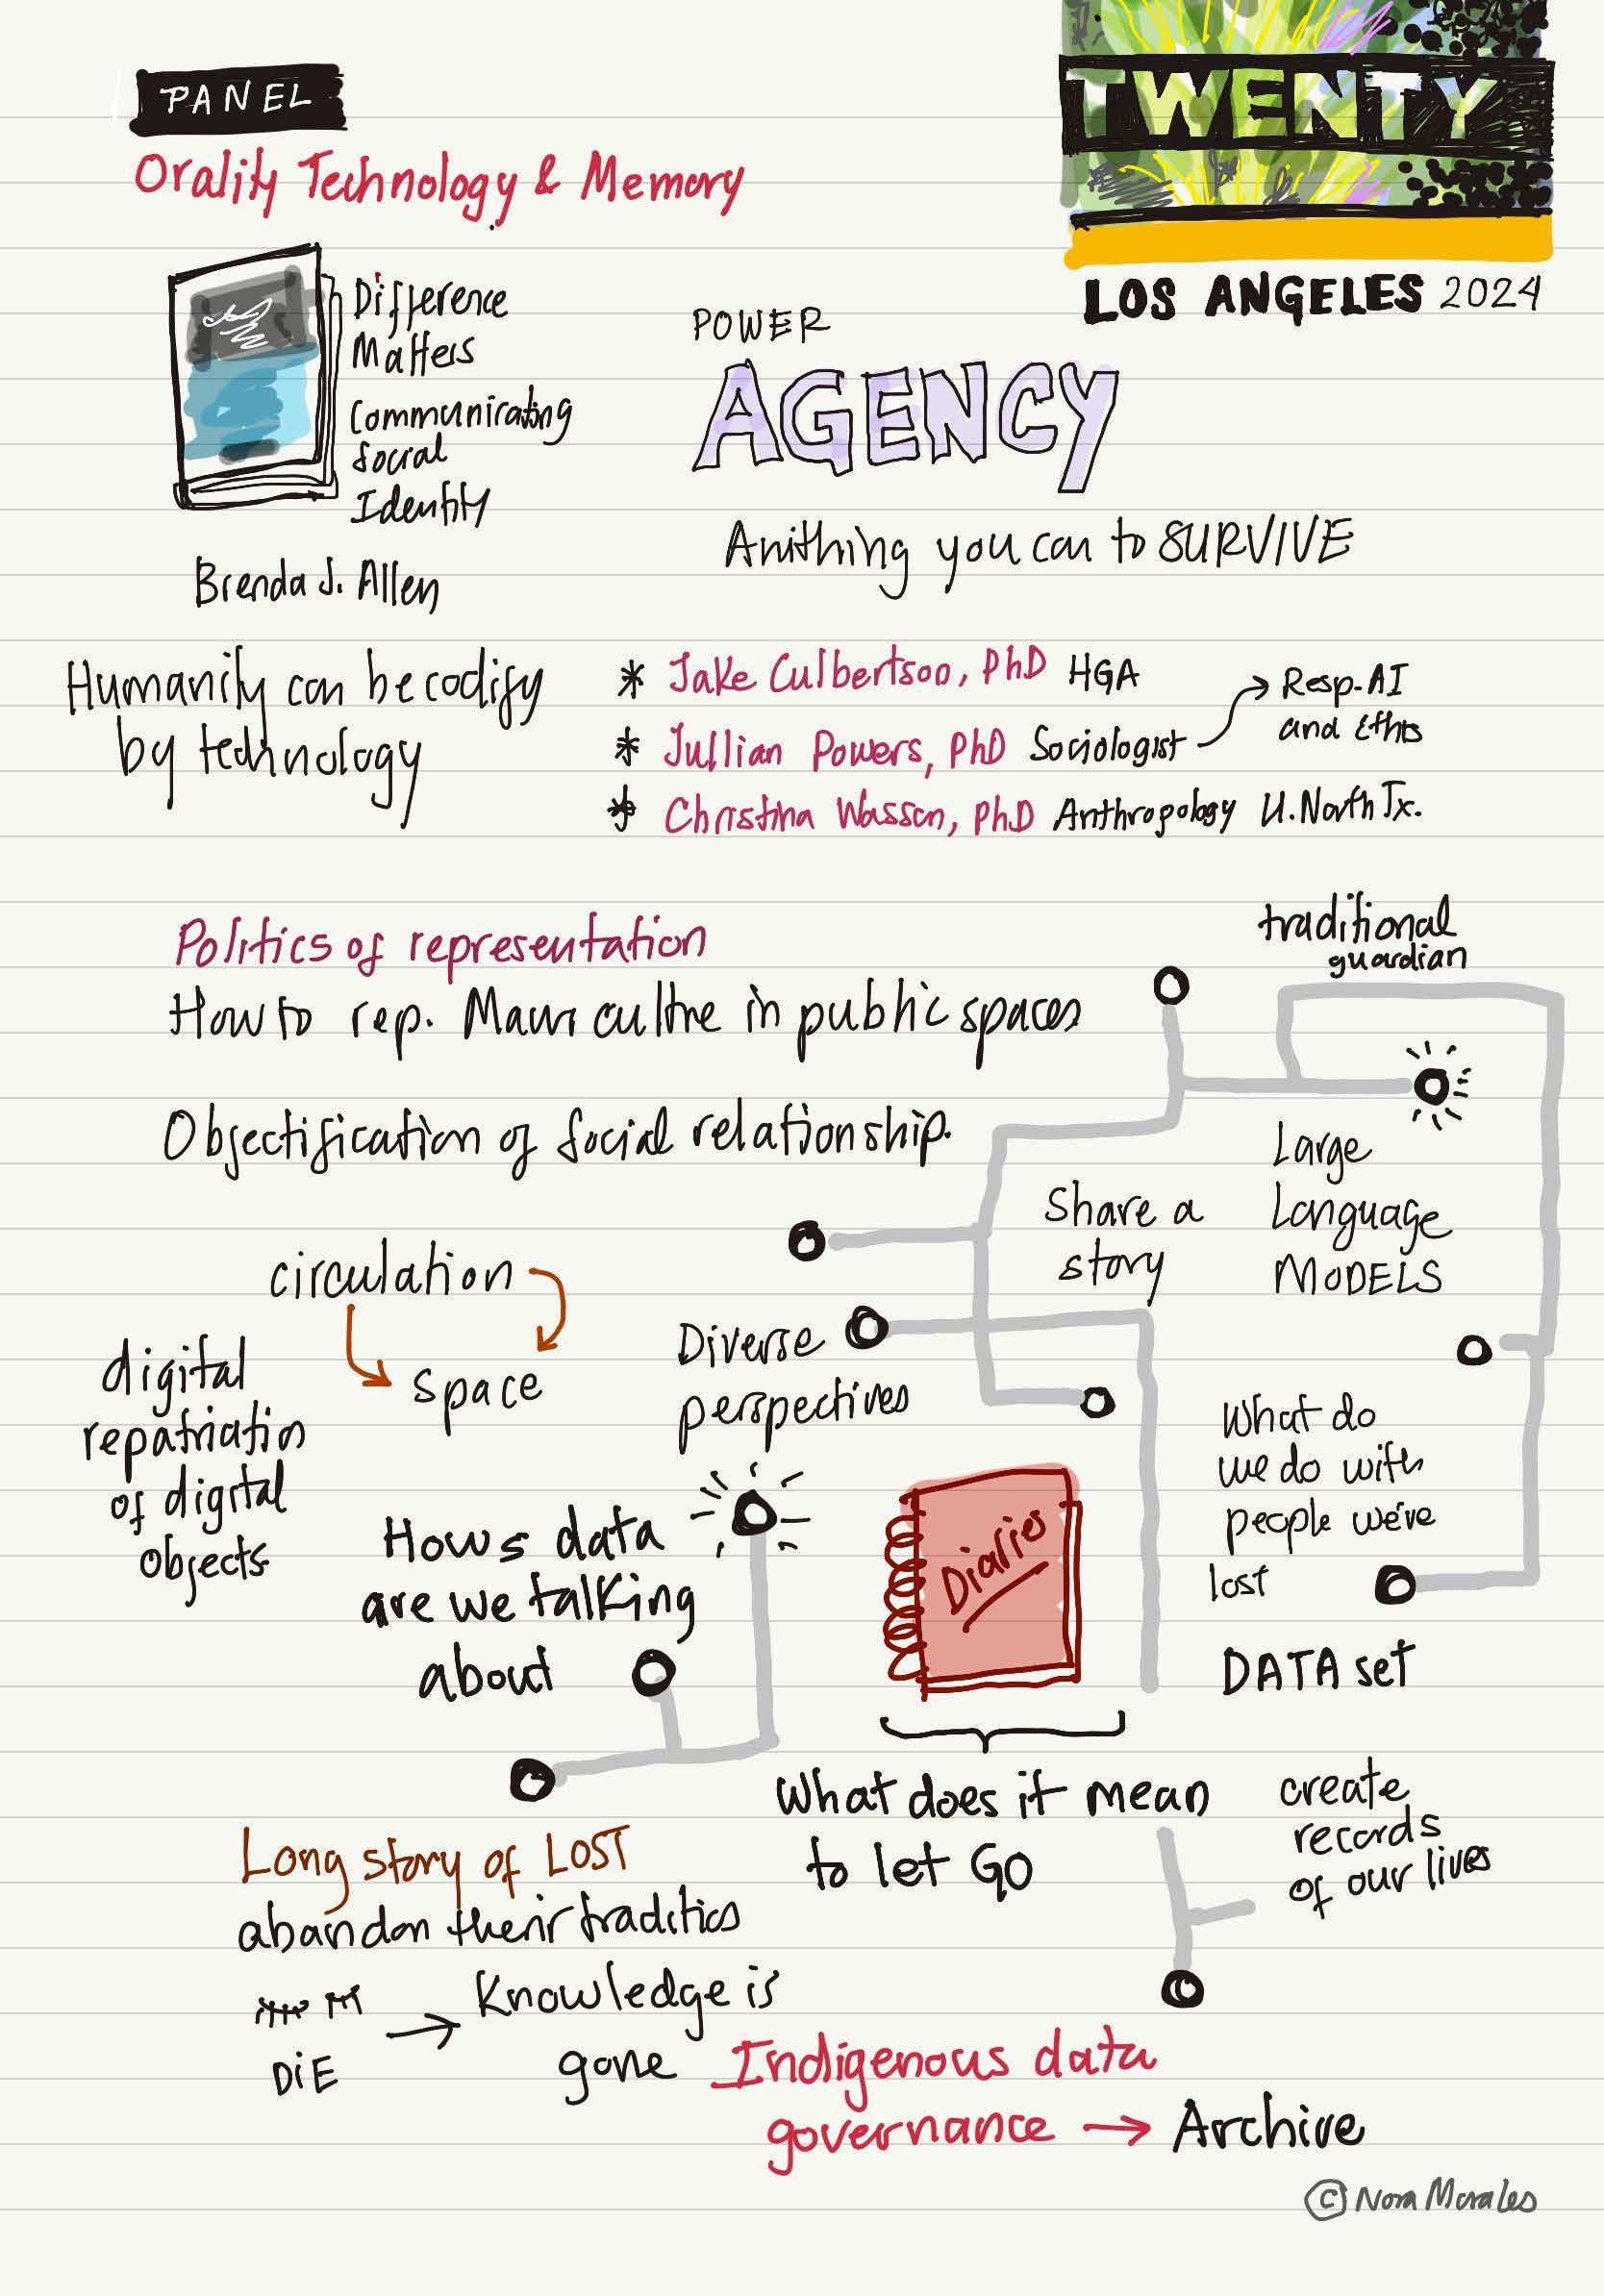 PANEL
TWENTY
Orality Technology & Memory
LOS ANGELES 2024
Difference
Matters
Communicating
Social
Identity
Brenda J. Allen
POWER
AGENCY
Anithing you can to SURVIVE
Humanity can be codify
by technology
* Jake Culbertson, PhD HGA
* Jullian Powers, PhD Sociologist
Resp. AI
and Ethis
* Christina Wasson, PhD Anthropology U. North Tx.
Politics of representation
How to rep. Mauri cultre in public spaces
Objectification of social relationship.
traditional
guardian
Large
Language
MODELS
Share a
story
circulation
space
digital
repatriatin
of digital
objects
Diverse
perspectives
What do
we do with
people we've
lost
Hows data
are we talking
about
Diaries
DATA set
What does it mean
to let GO
create
records
of our lives
Long story of LOST
abandon their traditios
DiE
→ Knowledge is
gone
Indigenous data
governance → Archive
© Nora Morales